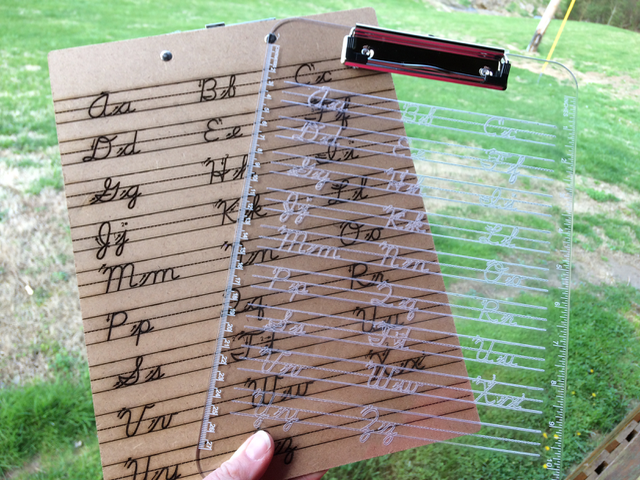 Aa Bb Cc
Dd Ee
Gg Hh
Jj Kk Ll
Mm Nn Oo
Pp Qq Rr
Ss Tt Uu
Vv Ww Xx
Yy Zz
Aa Bb Cc
Dd Ee Ff
Gg Hh
Jj Kk Ll
Mm Nn Oo
Pp Qq Rr
Ss Tt Uu
Vv Ww Xx
Yy Zz